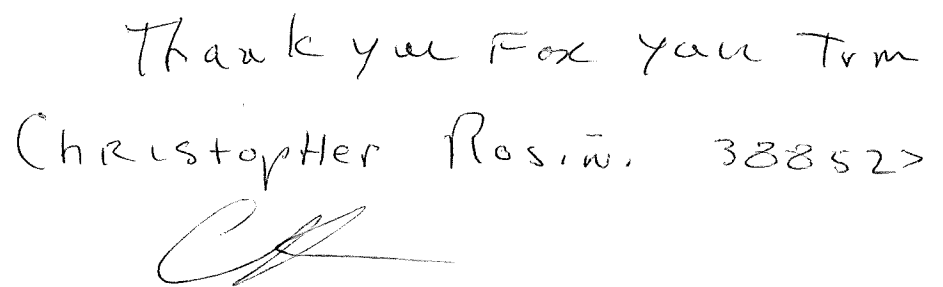 Thank you Fox your Tim
ChRistopHer Rosin. 388527